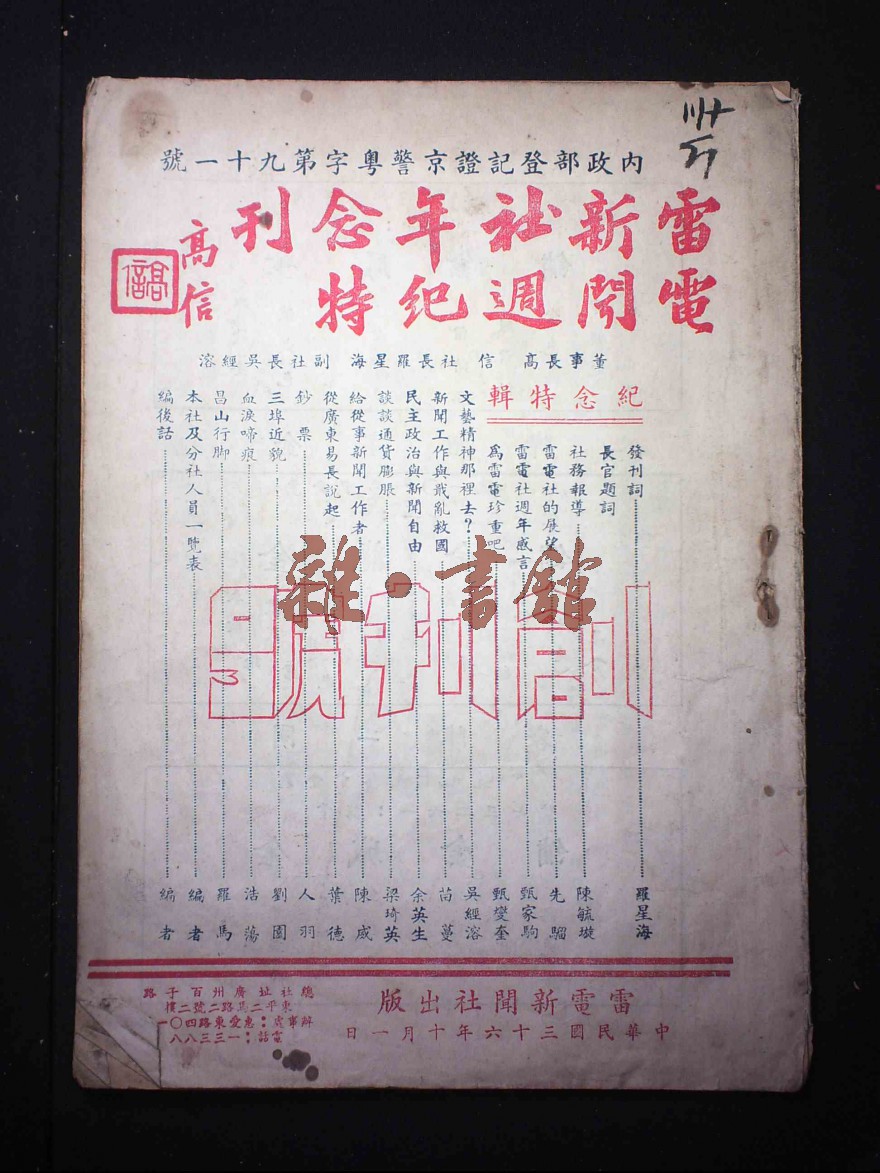 內政部登記證京警粵字第九十一號
雷電新聞社週年紀念特刊
高信
高信
董事長高信 社長羅星海 副社長吳經溶
紀念特輯
發刊詞……羅星海
長官題詞
社務報導……陳毓璇
雷電社的展望……先騮
雷電社週年感言……甄家駒
為雷電珍重吧……甄燮奎
文藝精神那裡去?……吳經溶
新聞工作與戡亂救國……苗蔓
民主政治與新聞自由……余英生
談談通貨膨脹……梁埼英
給從事新聞工作者……陳威
從廣東易長說起……葉德
鈔票……人羽
三埠近貌……劉園
血淚啼痕……浩蕩
昌山行腳……羅馬
本社及分社人員一覽表……編者
編後話……編者
創刊號
雜·書館
雷電新聞社出版
中華民國三十六年十月一日
總社址廣州百子路
東平二馬路二號二樓
辦事處:惠愛東路四〇一
電話:一三三八八